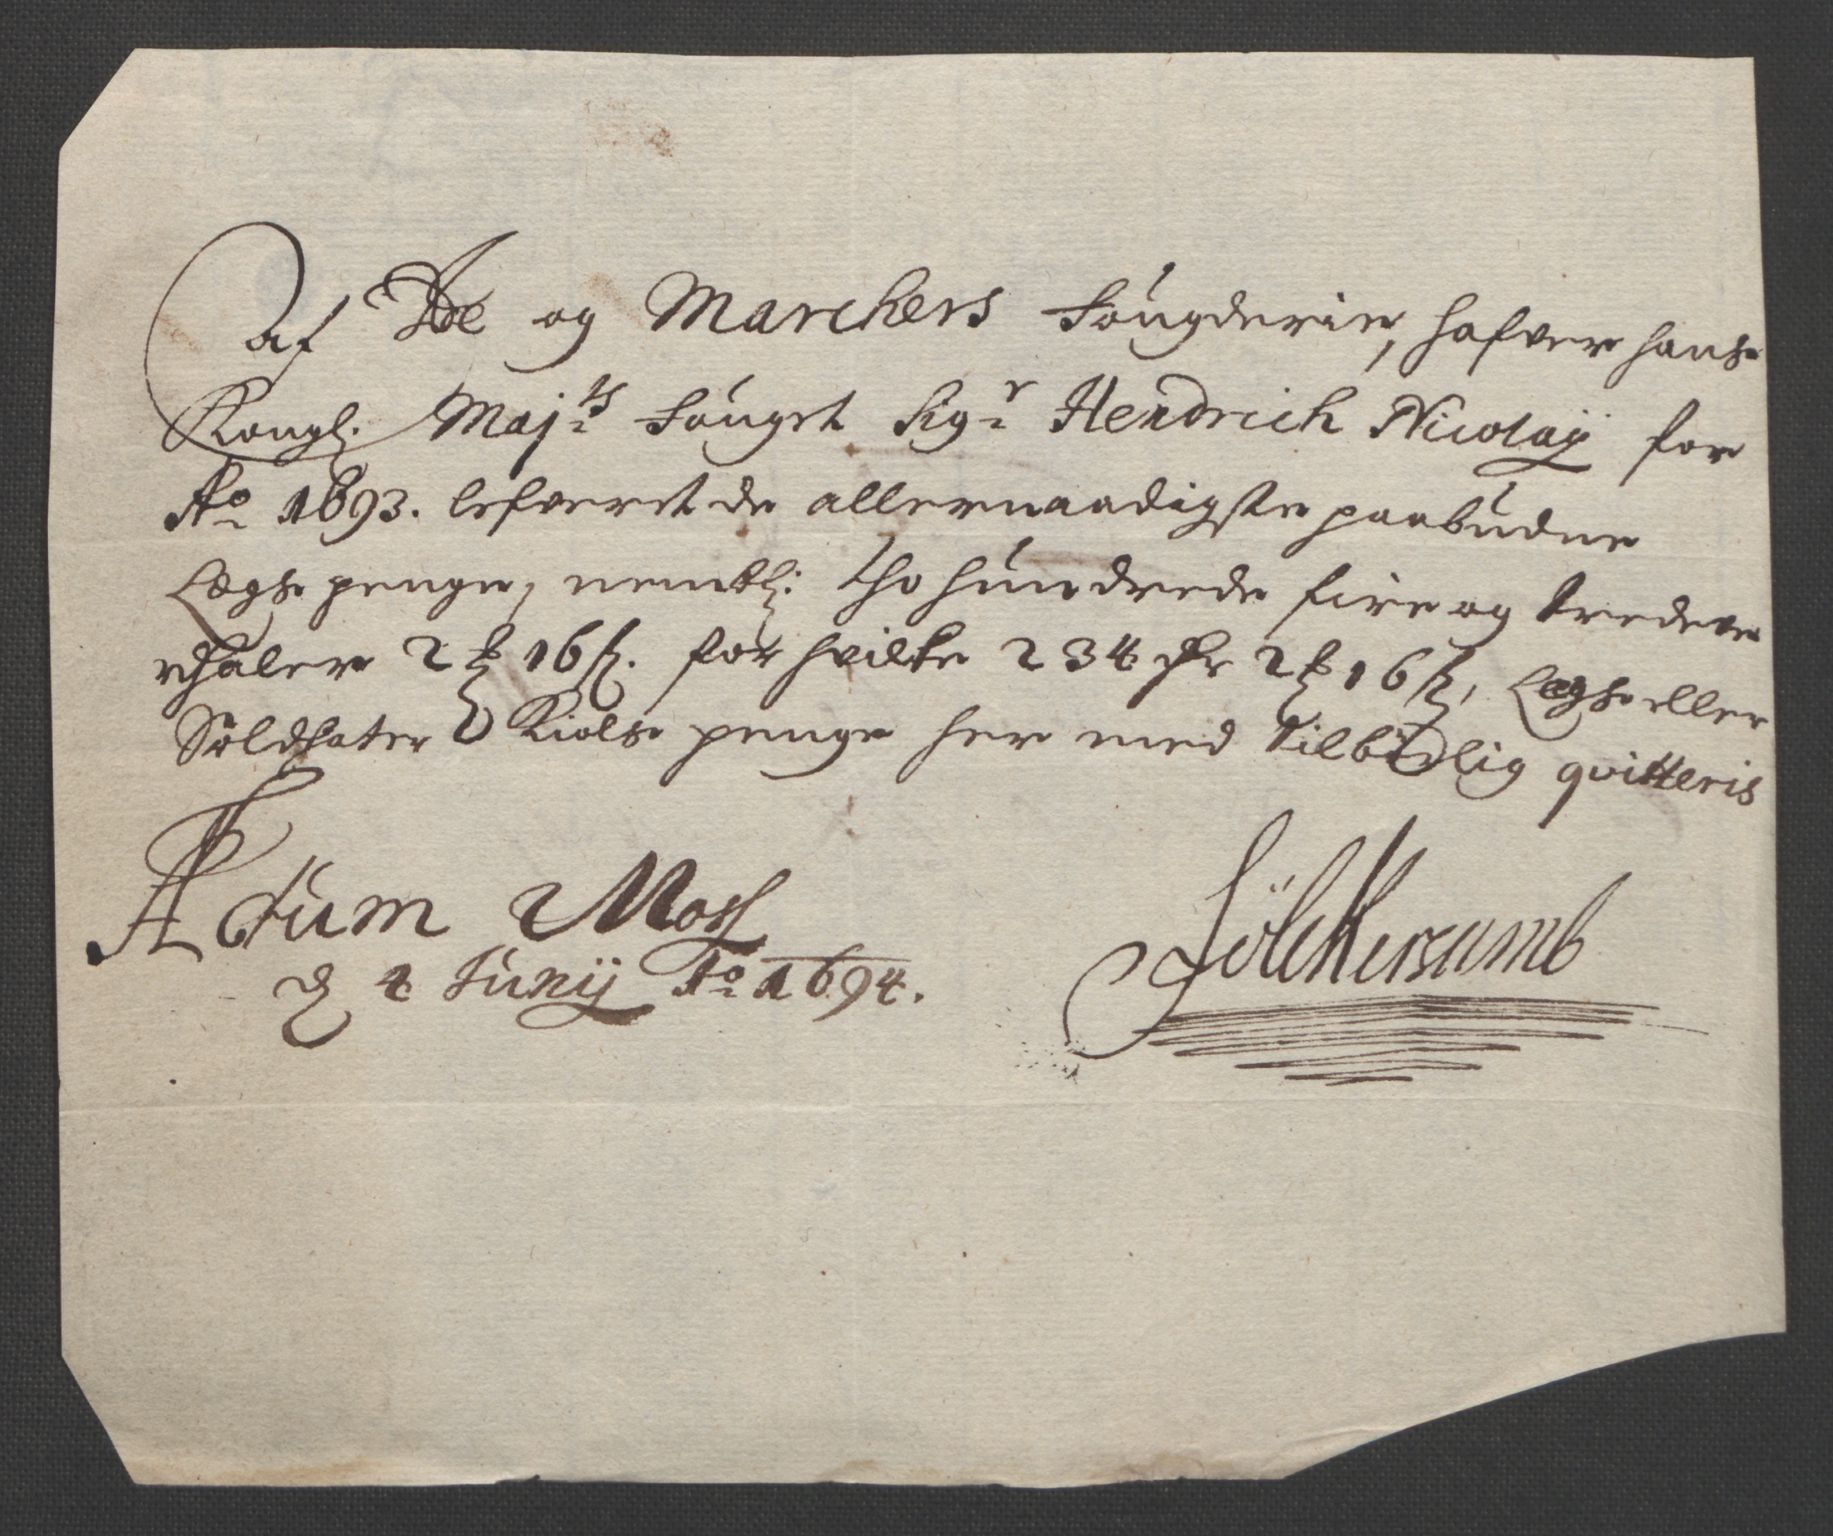 Af Ide og Marchers Fougderie, hafver hans
Kongl. Maj:ts Fouget Sigr Hendrich Nicolaÿ for
Ao 1693. lefveret de allernaadigste paabudne
Legs penge, nembl: tho hundrede fire og tredeve
rdhaler 2 ß 16 s. for hvilke 234 rdr 2 ß 16 s, Legs eller
Soldhater Kiols penge her med tilbørlig qvitteris
Actum Moss
d 4 Junij Ao 1694.
Fölckersamb